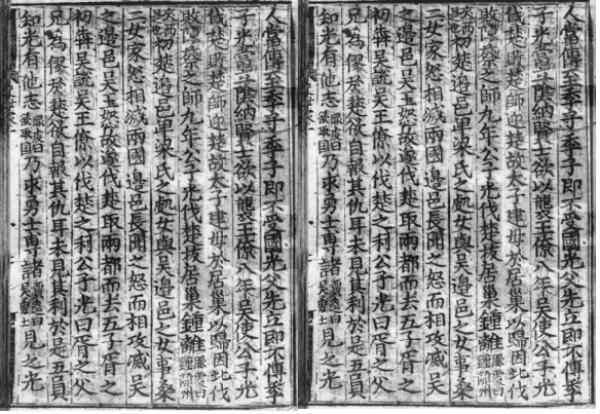 人當傳至季子季子即不受國光父先立即不傳季
子光當立陰納賢士欲以襲王僚八年吳使公子光
伐楚敗楚師迎楚故太子建母於居巢以歸因北伐
敗陳蔡之師九年公子光伐楚拔居巢鍾離服虔曰鍾離州
來西邑也初楚邊邑卑梁氏之處女與吳邊邑之女爭桑
二女家怒相滅兩國邊邑長聞之怒而相攻滅吳
之邊邑吳王怒故遂伐楚取兩都而去五子胥之
初奔吳說吳王僚以伐楚之利公子光曰胥之父
兄為僇於楚欲自報其仇耳未見其利於是五員
知光有他志服虔曰欲取國乃求勇士專諸賈逵曰吳勇士見之光
人當傳至季子季子即不受國光父先立即不傳季
子光當立陰納賢士欲以襲王僚八年吳使公子光
伐楚敗楚師迎楚故太子建母於居巢以歸因北伐
敗陳蔡之師九年公子光伐楚拔居巢鍾離服虔曰鍾離州
來西邑也初楚邊邑卑梁氏之處女與吳邊邑之女爭桑
二女家怒相滅兩國邊邑長聞之怒而相攻滅吳
之邊邑吳王怒故遂伐楚取兩都而去五子胥之
初奔吳說吳王僚以伐楚之利公子光曰胥之父
兄為僇於楚欲自報其仇耳未見其利於是五員
知光有他志服虔曰欲取國乃求勇士專諸賈逵曰吳勇士見之光